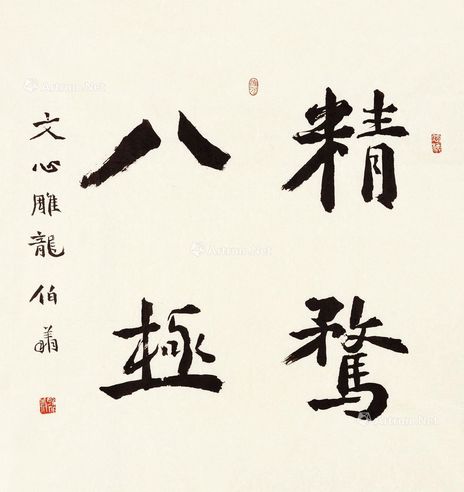 精鶩
八極
文心雕龍 伯翦
Artron.Net
Artron.Net
Artron.Net